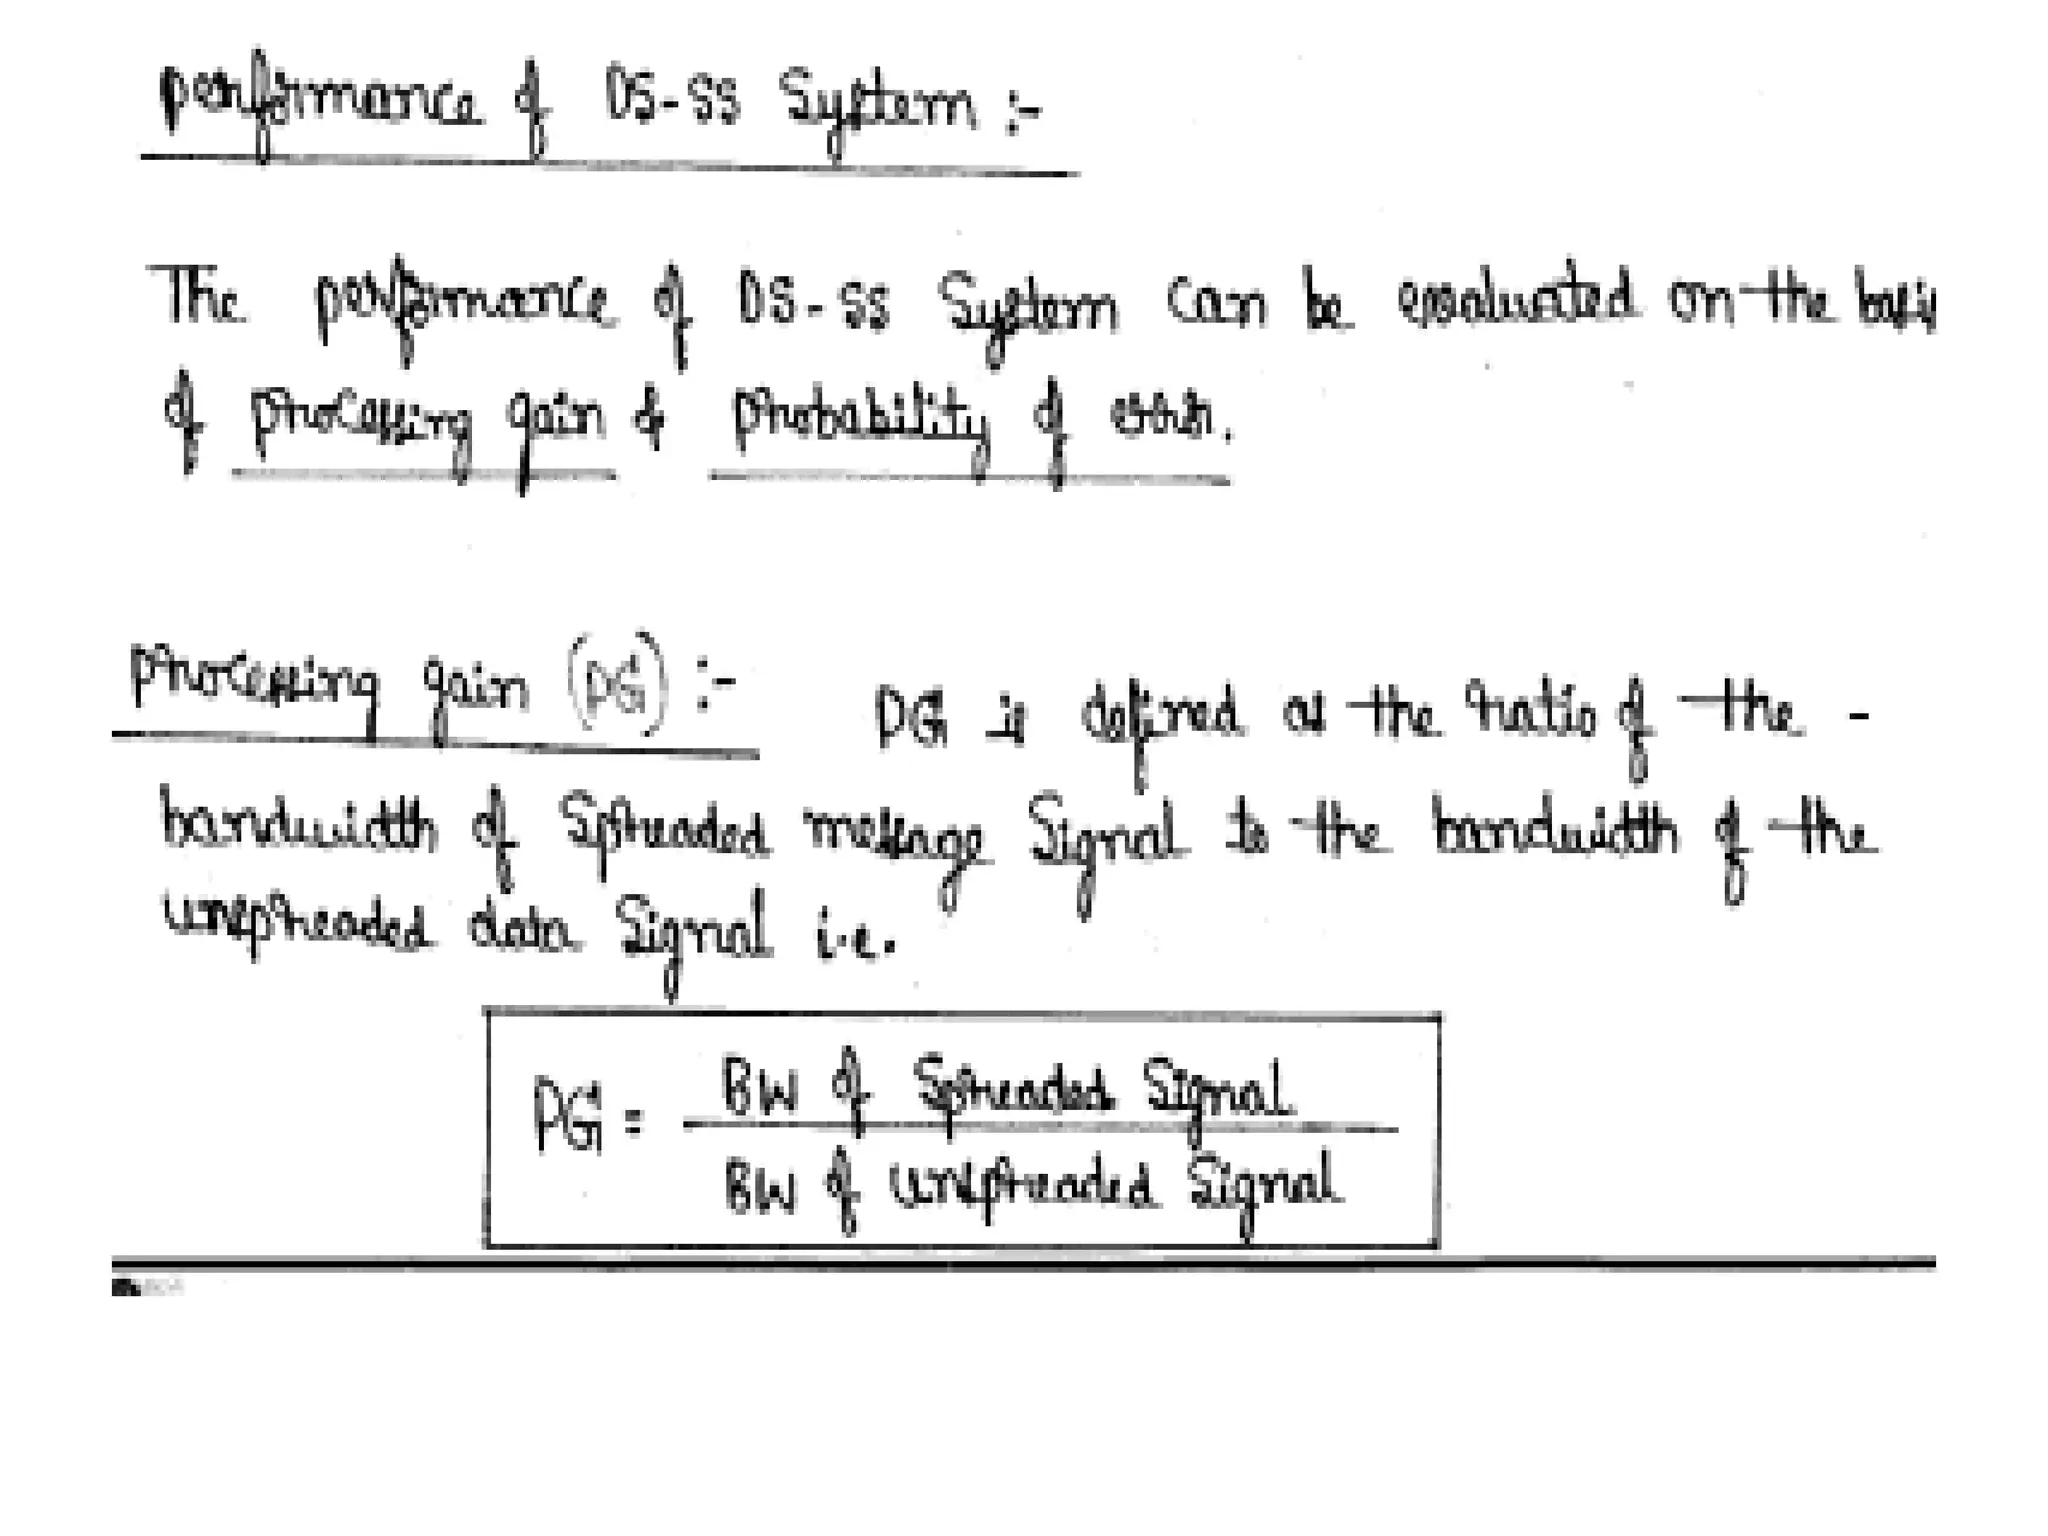 performance of DS-SS System :-
The performance of DS-SS System can be evaluated on the basis
of processing gain & probability of error.
processing gain (PG) :- PG is defined as the ratio of the -
bandwidth of Spreaded message Signal to the bandwidth of the
unspreaded data Signal i.e.
PG = BW of Spreaded Signal
BW of unspreaded Signal